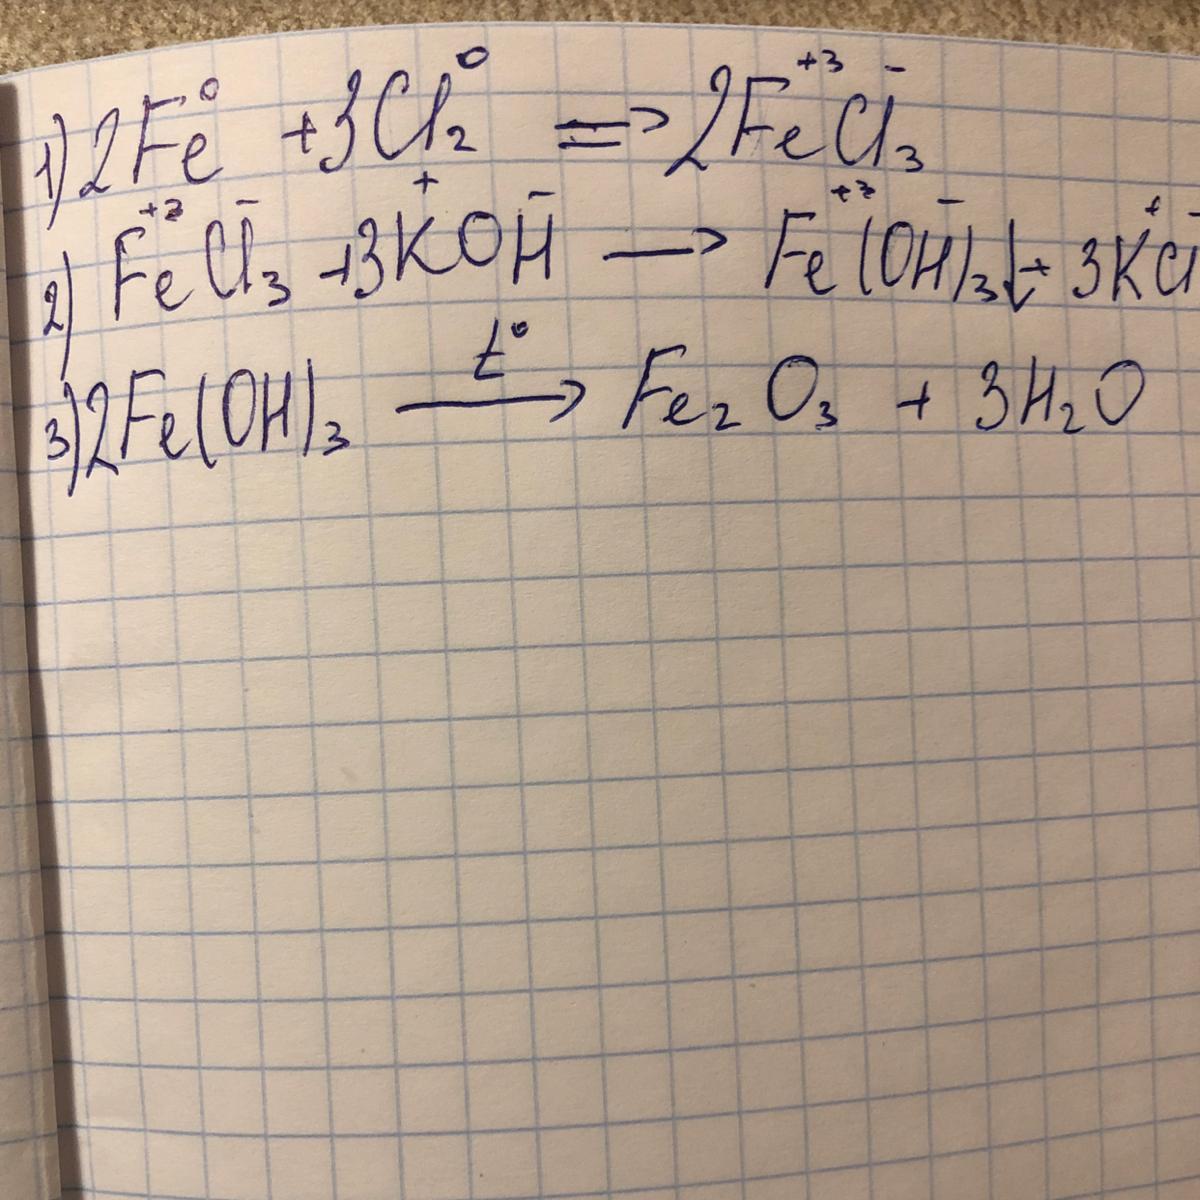 1) 2Fe⁰ + 3Cl₂⁰ => 2Fe⁺³Cl₃⁻
2) Fe⁺³Cl₃⁻ + 3K⁺OH⁻ → Fe⁺³(OH)₃⁻↓ + 3K⁺Cl⁻
3) 2Fe(OH)₃ —t°→ Fe₂O₃ + 3H₂O